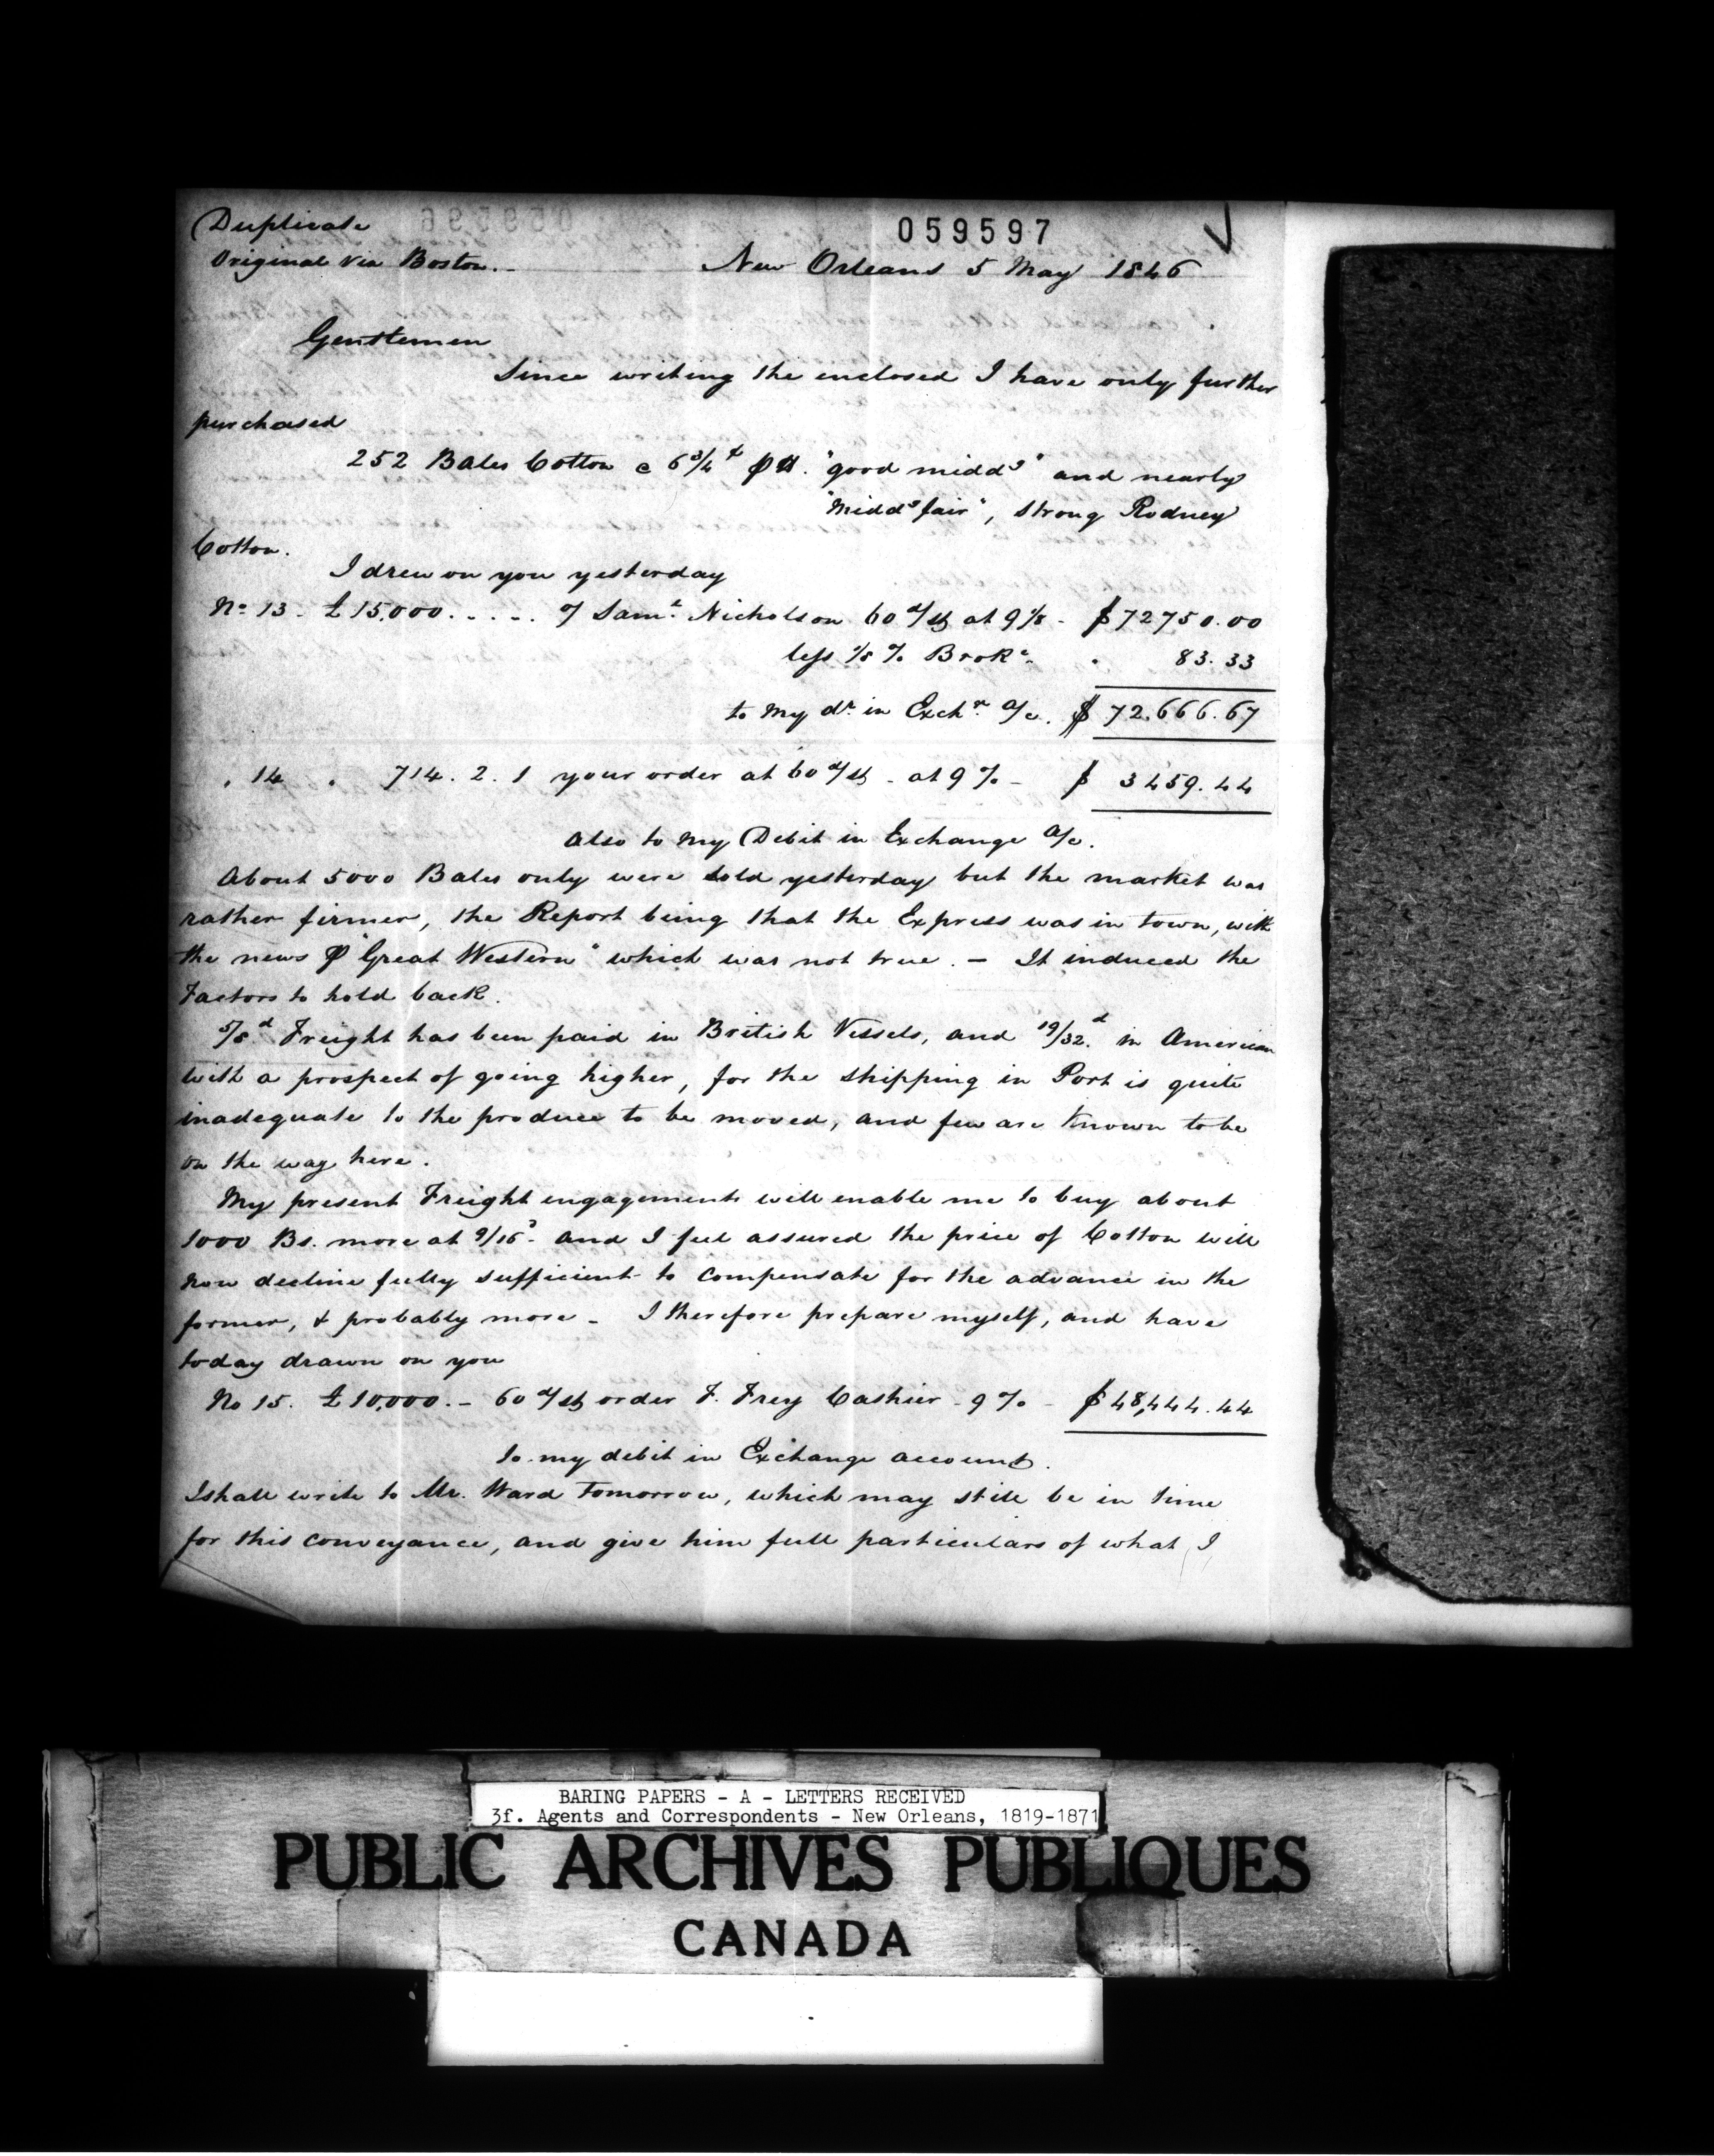 Duplicate
059597
Original via Boston.
New Orleans 5 May 1846
Gentlemen
Since writing the enclosed I have only further
purchased
252 Bales Cotton @ 6 3/4 ¢ ⅌ ℔. "good midd^g" and nearly
"Midd^g fair", strong Rodney
Cotton.
I drew on you yesterday
No. 13 - £15,000 ..... Saml. Nicholson 60 d/st at 9 1/8 - $72750.00
less 1/8 % Broke. 83.33
to my dr. in Exch. a/c. $72.666.67
" 14 " 714. 2. 1 your order at 60 d/st - at 9 % - $ 3459.44
Also to my Debit in Exchange a/c.
About 5000 Bales only were sold yesterday but the market was
rather firmer, the Report being that the Express was in town, with
the news ⅌ "Great Western" which was not true. - It induced the
Factors to hold back.
5/8d Freight has been paid in British Vessels, and 19/32d. in American
with a prospect of going higher, for the shipping in Port is quite
inadequate to the produce to be moved, and few are known to be
on the way here.
My present Freight engagements will enable me to buy about
1000 Bs. more at 9/16d - and I feel assured the price of Cotton will
now decline fully sufficient to compensate for the advance in the
former, & probably more - I therefore prepare myself, and have
today drawn on you
No 15. £10,000. - 60 d/st order F. Frey Cashier - 9 % - $48,444.44
To my debit in Exchange account.
I shall write to Mr. Ward tomorrow, which may still be in time
for this conveyance, and give him full particulars of what I
BARING PAPERS - A - LETTERS RECEIVED
3f. Agents and Correspondents - New Orleans, 1819-1871
PUBLIC ARCHIVES PUBLIQUES
CANADA